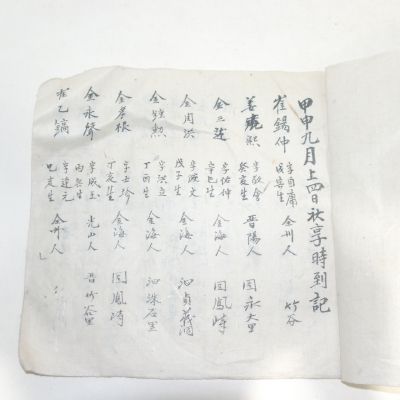 甲申九月上四日秋享時到記
崔錫仲 字自庸 戊寅生 全州人 竹谷
姜 熙 字敬會 癸亥生 晋陽人 固永大里
金三 字佑仲 辛巳生 金海人 固鳳峙
金周洪 字 文 戊子生 金海人 泗貞義洞
金 勲 字洪立 丁酉生 金海人 泗洙石里
金孝根 字士珍 丁亥生 金海人 固鳳峙
金永聲 字成玉 丙辰生 光山人 晋竹谷里
崔乙鎬 字達元 己亥生 全州人